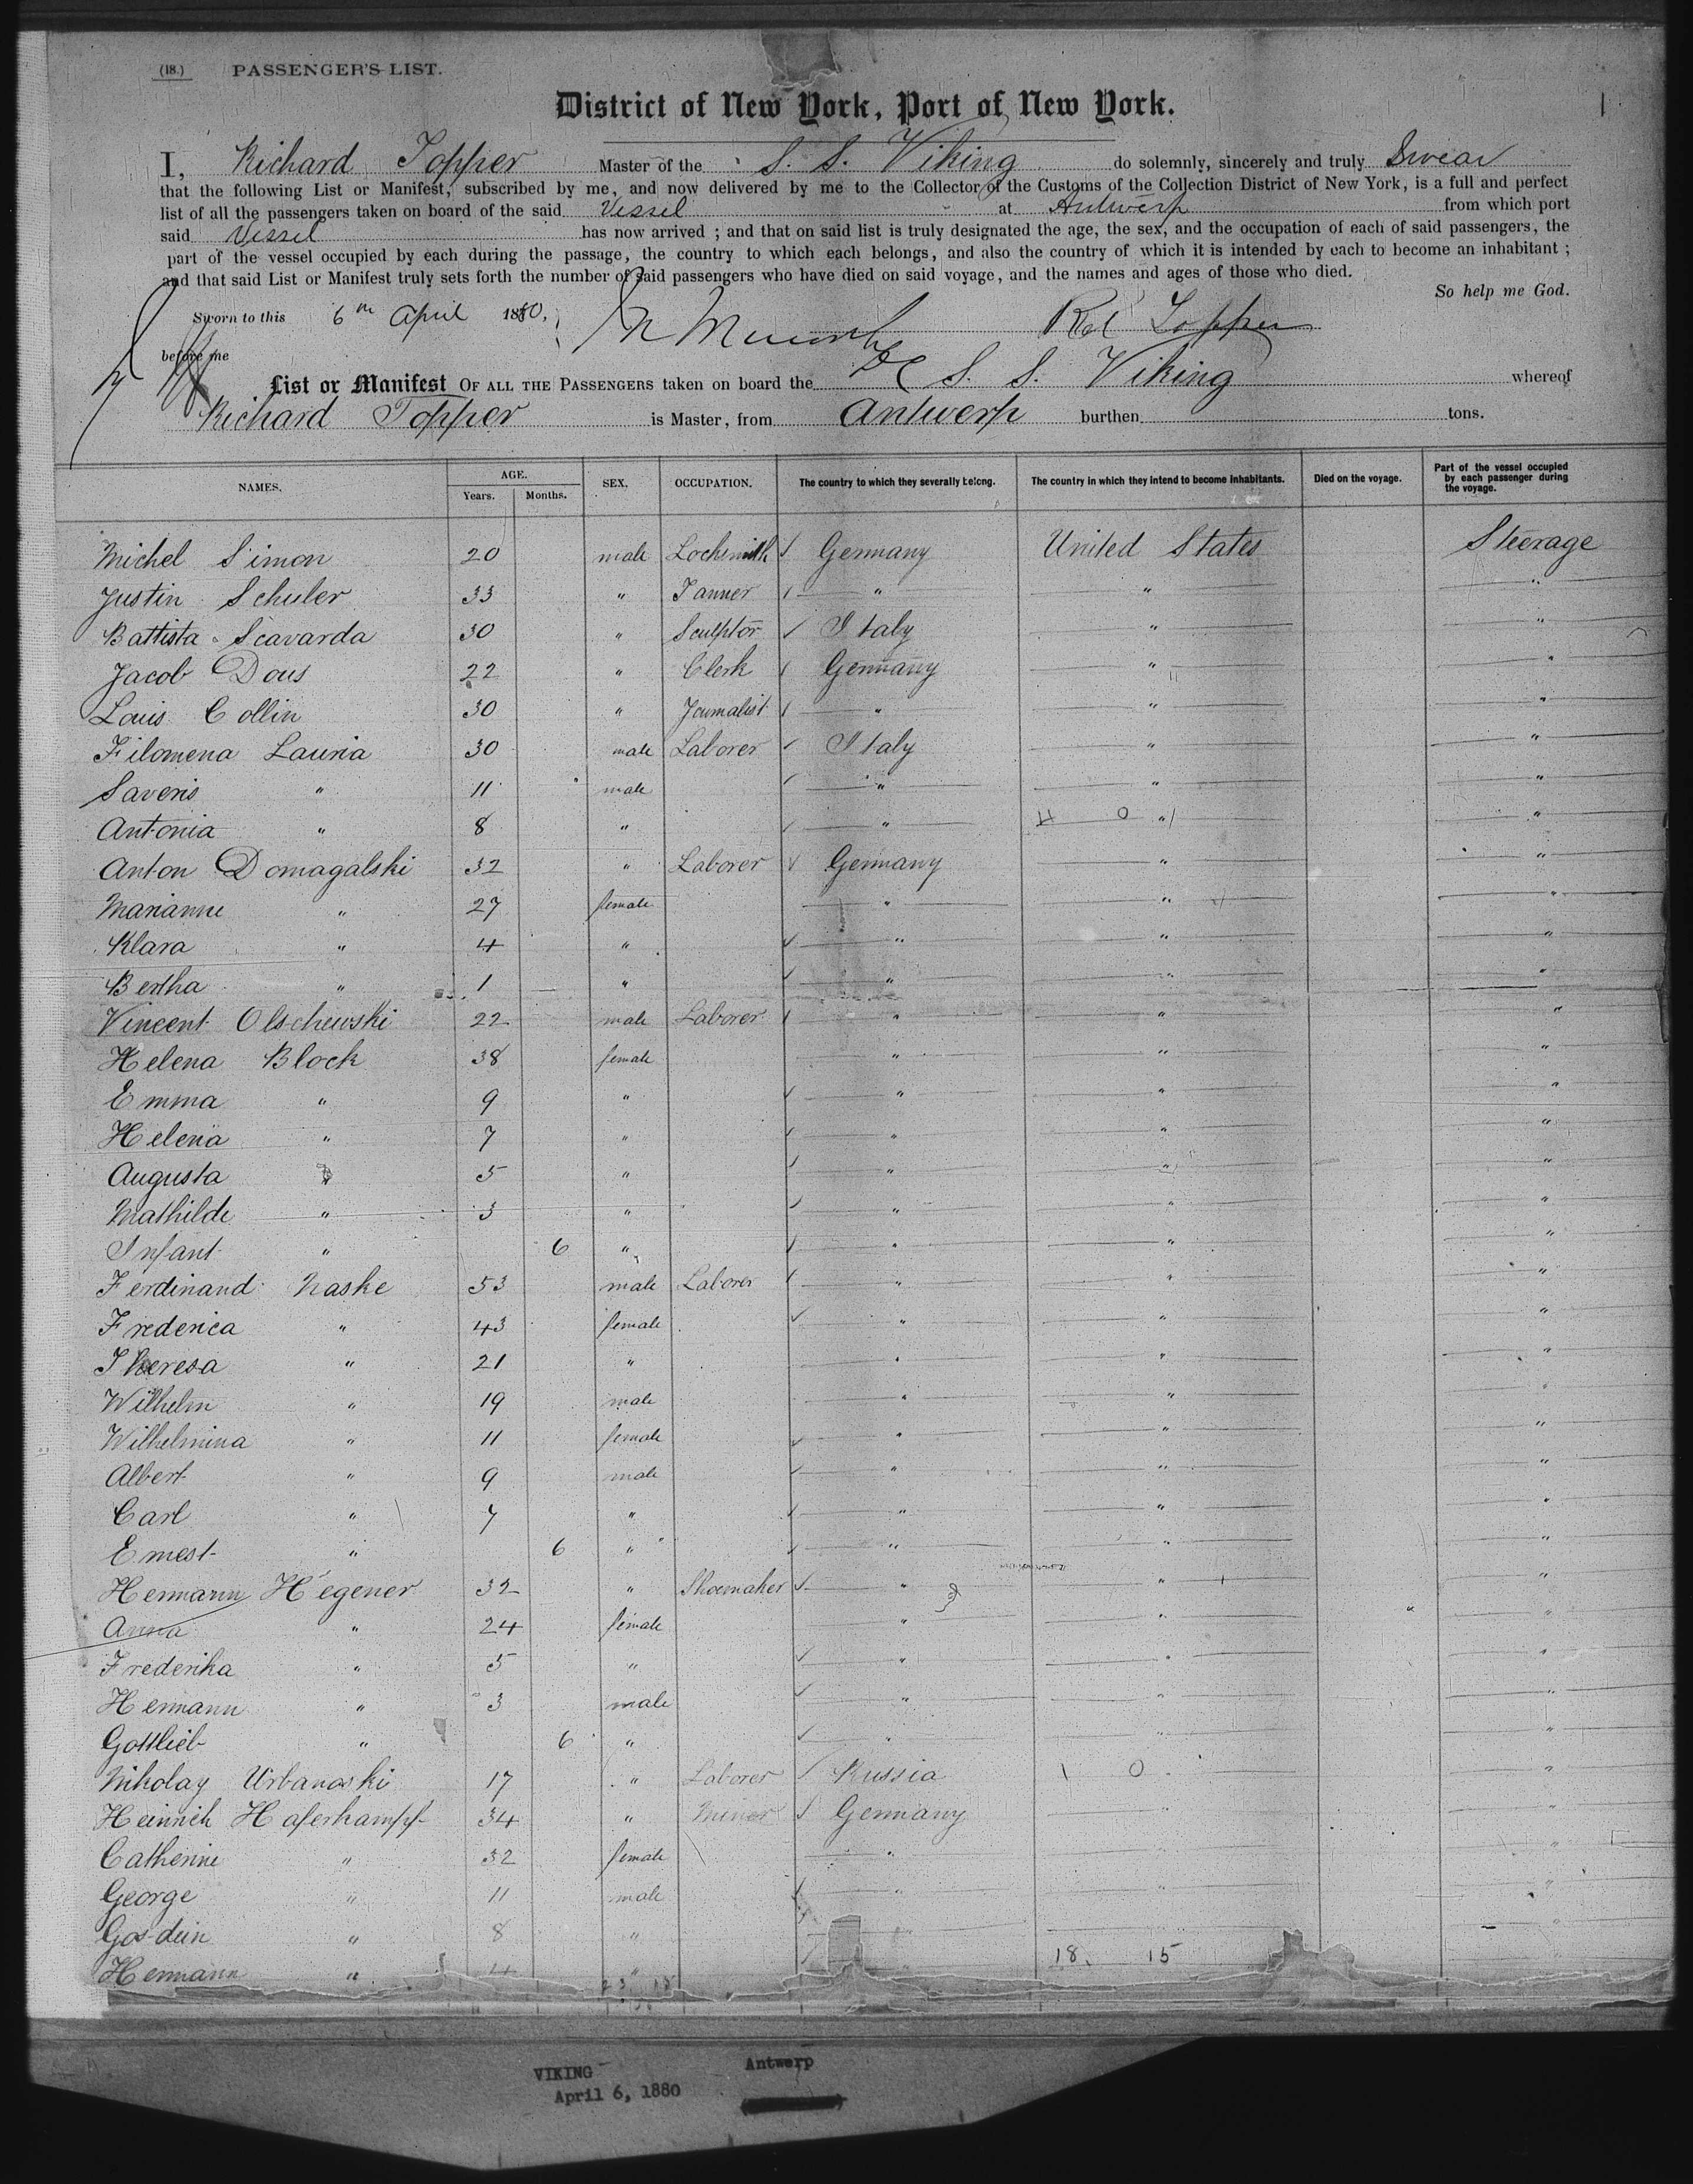 (18.) PASSENGER'S LIST.
District of New York, Port of New York.
I, Richard Topper Master of the S. S. Viking do solemnly, sincerely and truly Swear
that the following List or Manifest, subscribed by me, and now delivered by me to the Collector of the Customs of the Collection District of New York, is a full and perfect
list of all the passengers taken on board of the said Vessel at Antwerp from which port
said Vessel has now arrived ; and that on said list is truly designated the age, the sex, and the occupation of each of said passengers, the
part of the vessel occupied by each during the passage, the country to which each belongs, and also the country of which it is intended by each to become an inhabitant ;
and that said List or Manifest truly sets forth the number of said passengers who have died on said voyage, and the names and ages of those who died.
So help me God.
Sworn to this 6th April 1880, Rd Topper
before me
List or Manifest OF ALL THE PASSENGERS taken on board the S. S. Viking whereof
Richard Topper is Master, from Antwerp burthen tons.
NAMES. AGE. Years. Months. SEX. OCCUPATION. The country to which they severally belong. The country in which they intend to become inhabitants. Died on the voyage. Part of the vessel occupied by each passenger during the voyage.
Michel Simon 20 male Locksmith Germany United States Steerage
Justin Schuler 33 " Tanner " " "
Battista Scavarda 30 " Sculptor Italy " "
Jacob Dous 22 " Clerk Germany " "
Louis Collin 30 " Journalist " " "
Filomena Lauria 30 male Laborer Italy " "
Saveris " 11 male " " "
Antonia " 8 " " " "
Anton Domagalski 32 " Laborer Germany " "
Marianne " 27 female " " "
Klara " 4 " " " "
Bertha " 1 " " " "
Vincent Olschewski 22 male Laborer " " "
Helena Block 38 female " " "
Emma " 9 " " " "
Helena " 7 " " " "
Augusta " 5 " " " "
Mathilde " 3 " " " "
Infant " 6 " " " "
Ferdinand Naske 53 male Laborer " " "
Frederica " 43 female " " "
Theresa " 21 " " " "
Wilhelm " 19 male " " "
Wilhelmina " 11 female " " "
Albert " 9 male " " "
Carl " 7 " " " "
Ernest " 6 " " " "
Hermann Hegener 32 " Shoemaker " " "
Anna " 24 female " " "
Frederika " 5 " " " "
Hermann " 3 male " " "
Gottlieb " 6 " " " "
Nikolay Urbanoski 17 " Laborer Russia "
Heinrich Haferkampf 34 " Miner Germany " "
Catherine " 32 female " " "
George " 11 male " " "
" 8 " " "
Hermann " 4 " "
18. 15
VIKING Antwerp
April 6, 1880